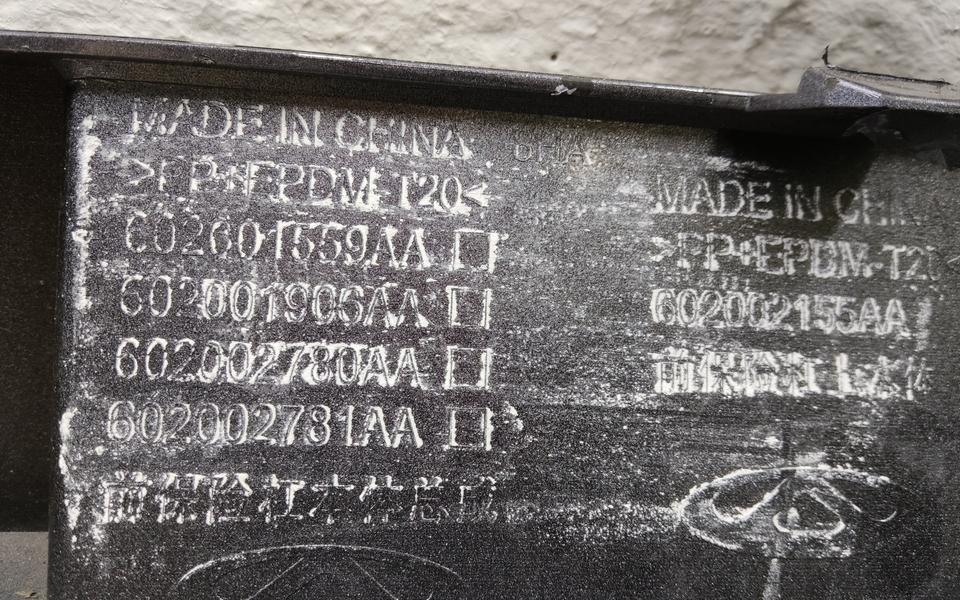 MADE IN CHINA
>PP+EPDM-T20<
602601559AA
602001906AA
602002780AA
602002781AA
前保险杠本体总成
MADE IN CHIN
>PP+EPDM-T20
602002155AA
前保险杠上本体